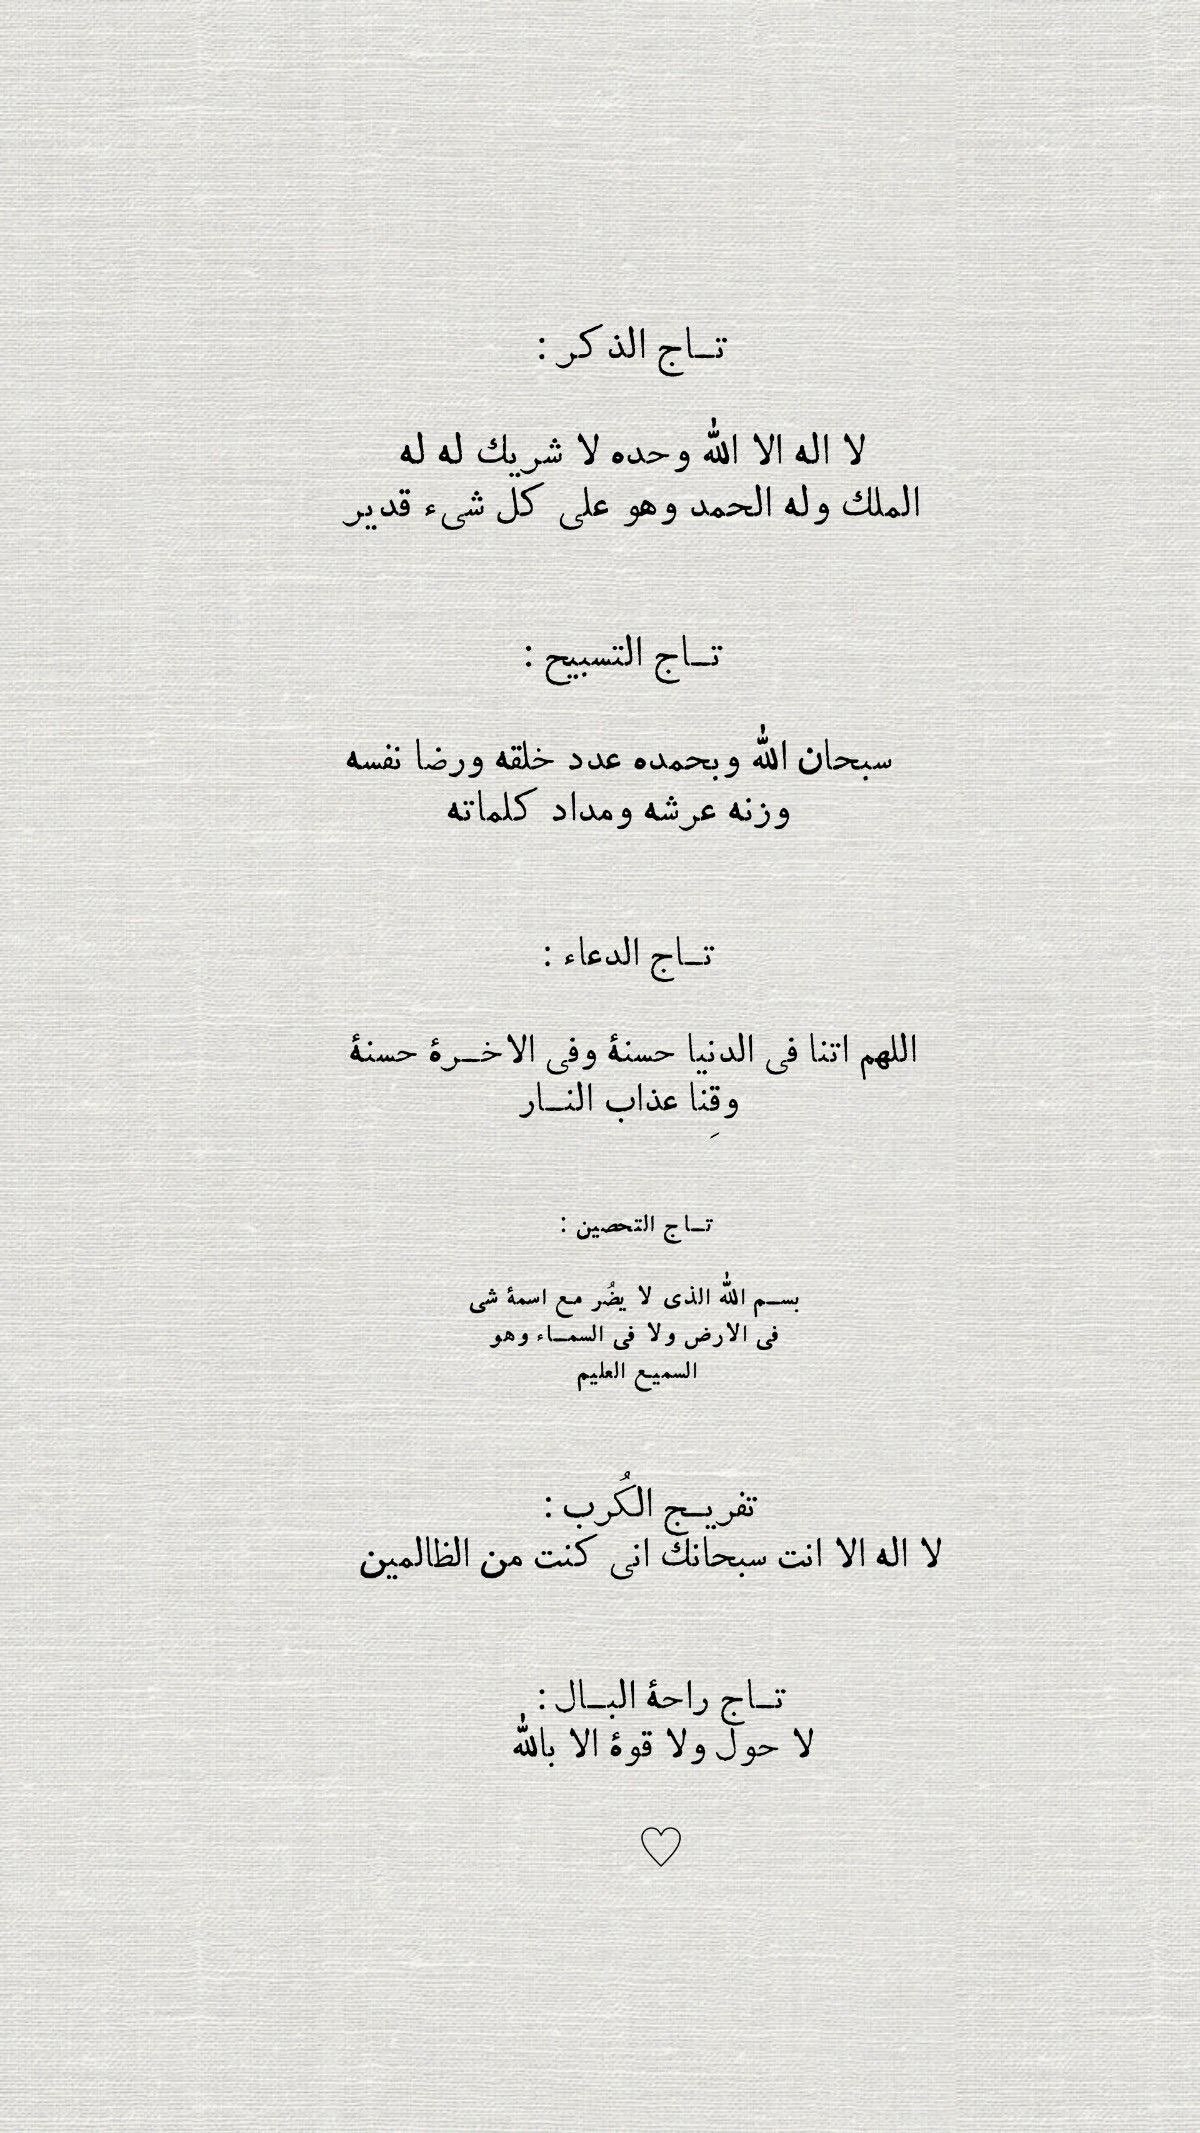 تــاج الذكر :
لا اله الا الله وحده لا شريك له له
الملك وله الحمد وهو على كل شىء قدير
تــاج التسبيح :
سبحان الله وبحمده عدد خلقه ورضا نفسه
وزنه عرشه ومداد كلماته
تــاج الدعاء :
اللهم اتنا فى الدنيا حسنۀ وفى الاخــرۀ حسنۀ
وقِنا عذاب النــار
تــاج التحصين :
بســم الله الذى لا يضُر مع اسمۀ شى
فى الارض ولا فى السمــاء وهو
السميع العليم
تفريــج الكُرب :
لا اله الا انت سبحانك انى كنت من الظالمين
تــاج راحۀ البــال :
لا حول ولا قوۀ الا بالله
♡